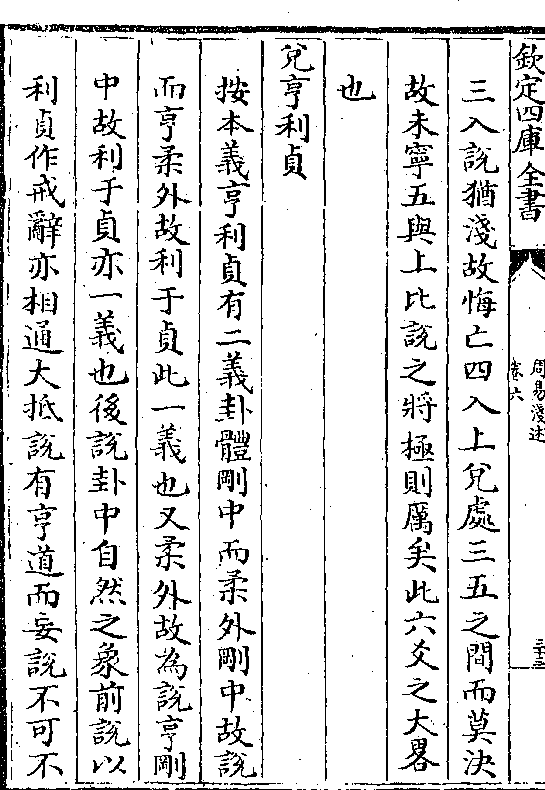 欽定四庫全書
周易淺述
卷六
三十三
三入說猶淺故悔亡四入上兌處三五之間而莫決
故未寧五與上比說之將極則厲矣此六爻之大畧
也
兌亨利貞
按本義亨利貞有二義卦體剛中而柔外剛中故說
而亨柔外故利于貞此一義也又柔外故為說亨剛
中故利于貞亦一義也後說卦中自然之象前說以
利貞作戒辭亦相通大抵說有亨道而妄說不可不